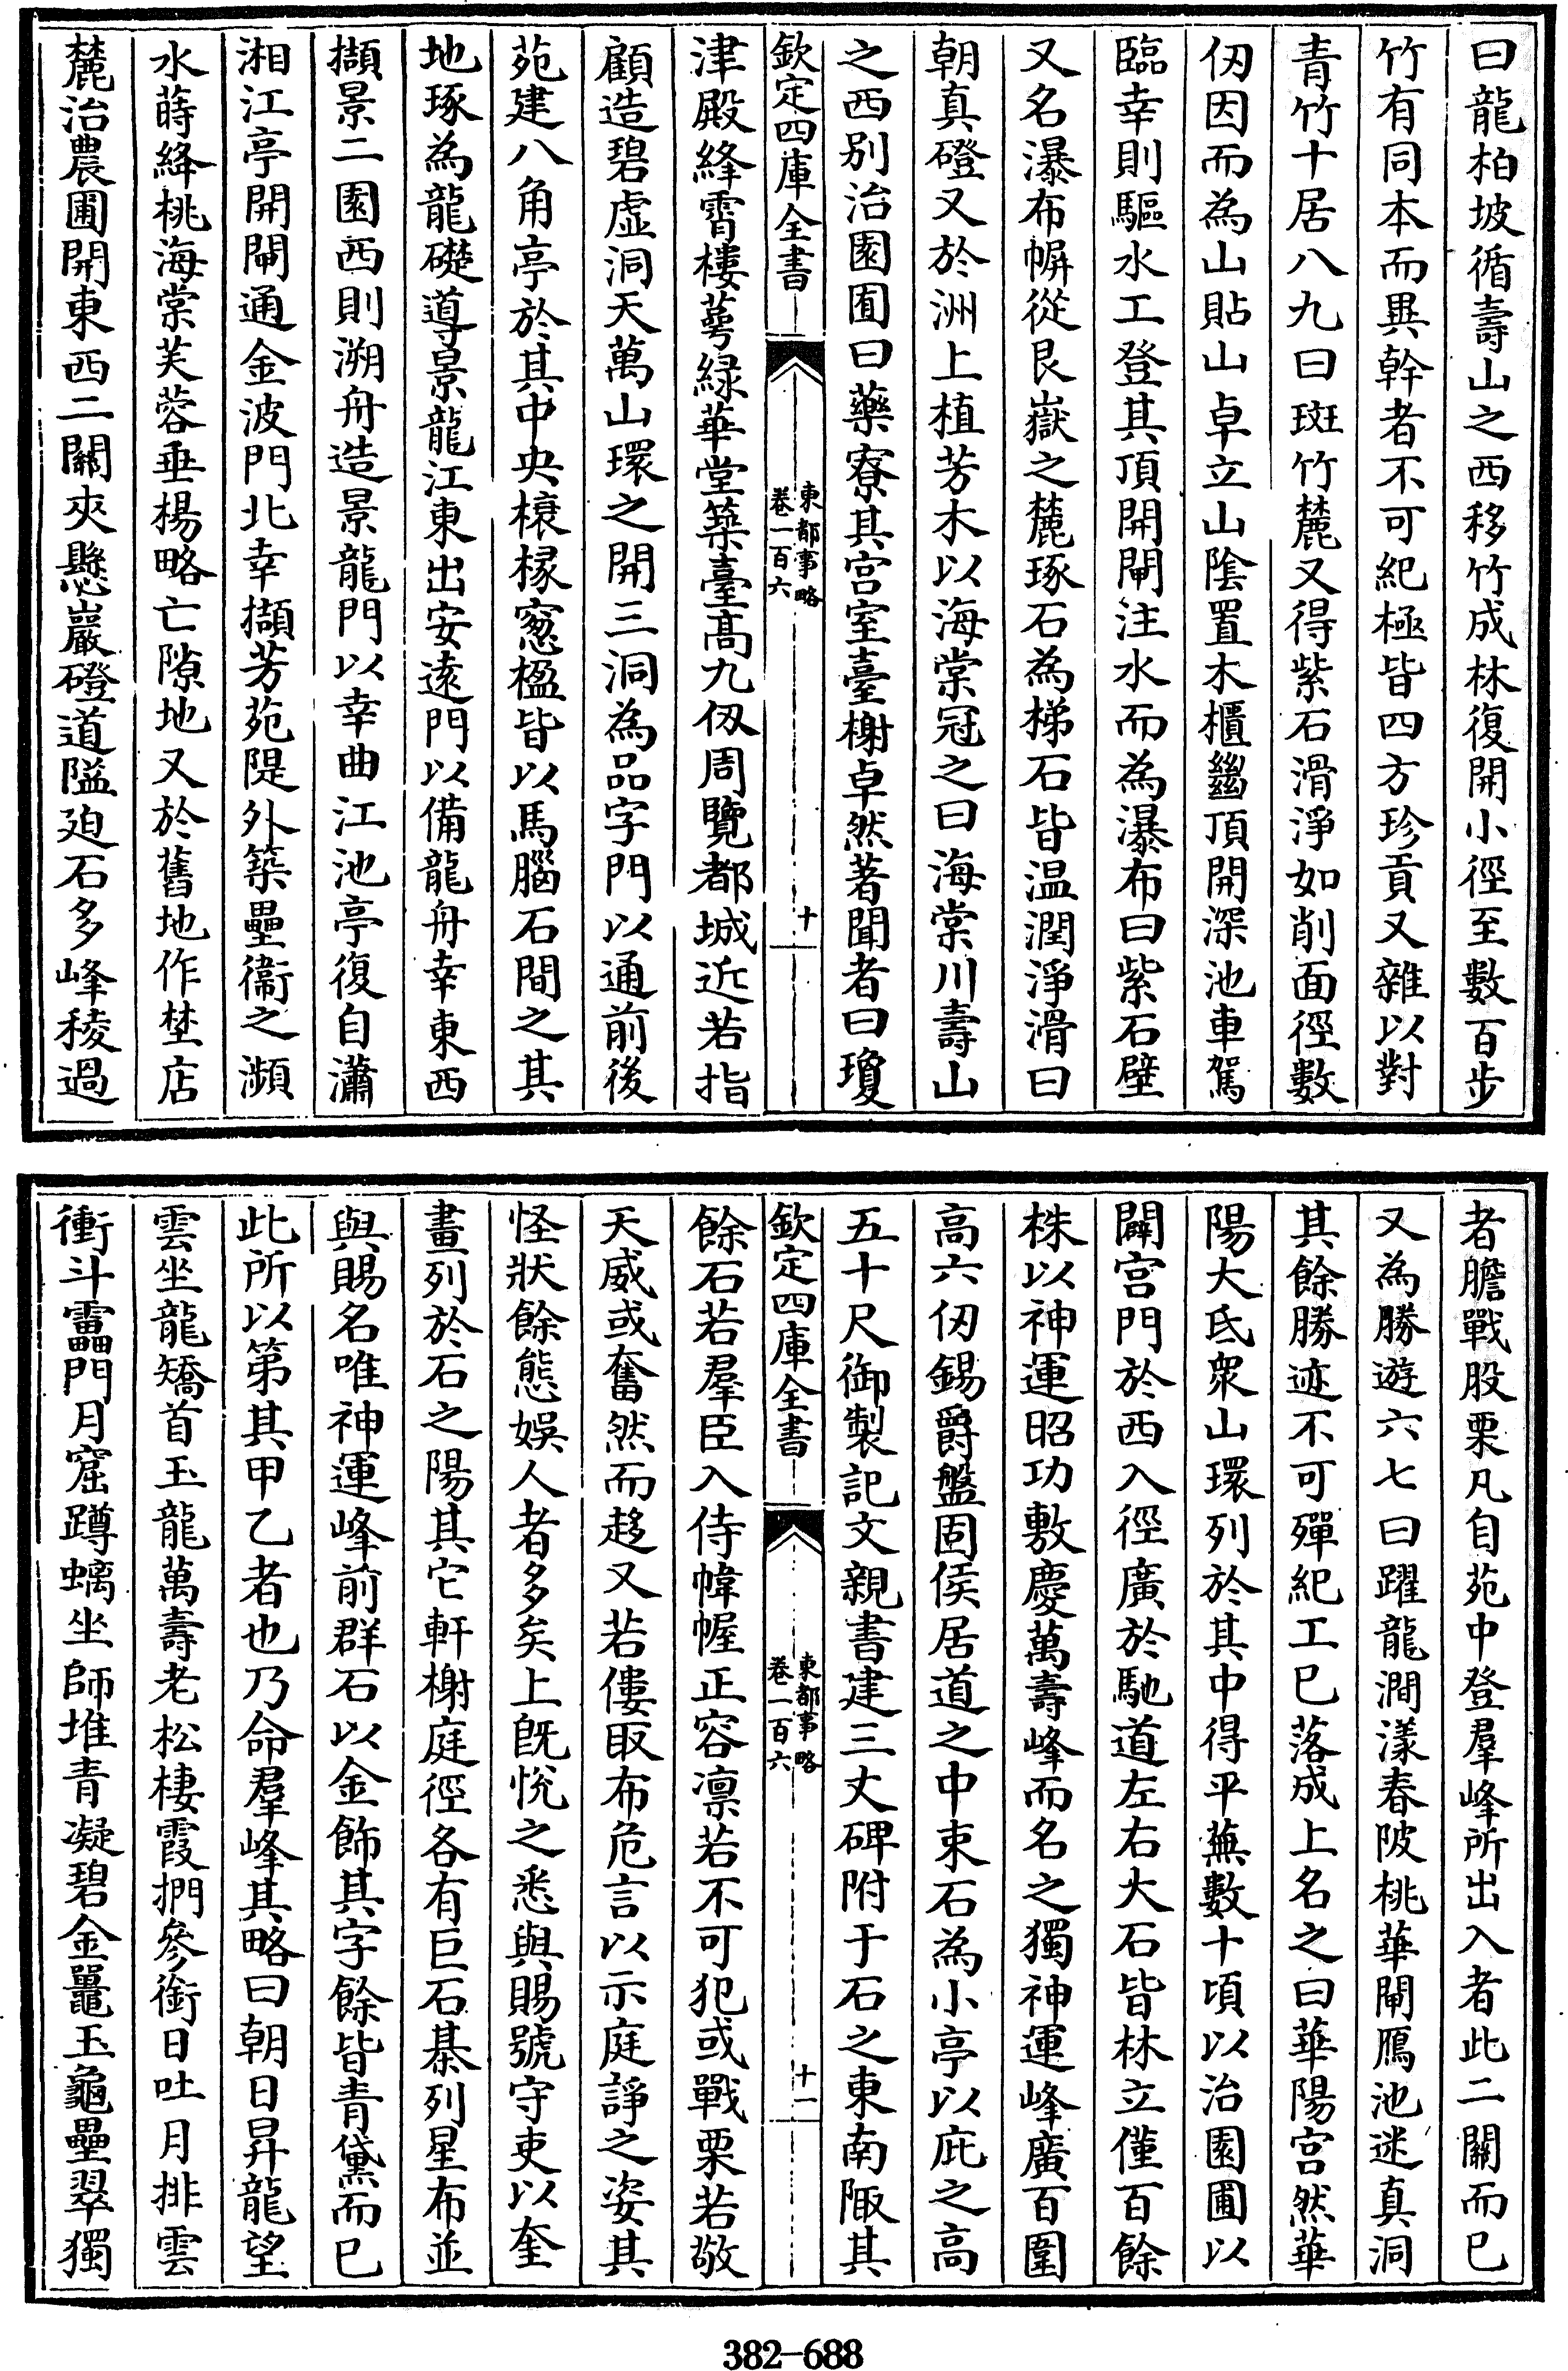 曰龍柏坡循壽山之西移竹成林復開小徑至數百步
竹有同本而異幹者不可紀極皆四方珍貢又雜以對
青竹十居八九曰斑竹麓又得紫石滑淨如削面徑數
仞因而為山貼山卓立山陰置木櫃繇頂開深池車駕
臨幸則驅水工登其頂開閘注水而為瀑布曰紫石壁
又名瀑布㡚從艮嶽之麓琢石為梯石皆温潤淨滑曰
朝真磴又於洲上植芳木以海棠冠之曰海棠川壽山
之西别治園囿曰藥寮其宫室臺榭卓然著聞者曰瓊
欽定四庫全書
東都事略
卷一百六
十
津殿絳霄樓蕚緑華堂築臺髙九仭周覽都城近若指
顧造碧虛洞天萬山環之開三洞為品字門以通前後
苑建八角亭於其中央榱椽窻楹皆以馬腦石間之其
地琢為龍礎導景龍江東出安逺門以備龍舟幸東西
擷景二園西則溯舟造景龍門以幸曲江池亭復自瀟
湘江亭開閘通金波門北幸擷芳苑隄外築壘衞之瀕
水蒔絳桃海棠芙蓉垂楊略亡隙地又於舊地作埜店
麓治農圃開東西二關夾懸巖磴道隘廹石多峰稜過
者膽戰股栗凡自苑中登羣峰所出入者此二關而已
又為勝遊六七曰躍龍澗漾春陂桃華閘鴈池迷真洞
其餘勝迹不可殫紀工已落成上名之曰華陽宫然華
陽大氐衆山環列於其中得平蕪數十頃以治園圃以
闢宫門於西入徑廣於馳道左右大石皆林立僅百餘
株以神運昭功敷慶萬壽峰而名之獨神運峰廣百圍
高六仞錫爵盤固侯居道之中束石為小亭以庇之高
五十尺御製記文親書建三丈碑附于石之東南陬其
欽定四庫全書
東都事略
卷一百六
十一
餘石若羣臣入侍幃幄正容凛若不可犯或戰栗若敬
天威或奮然而趍又若僂取布危言以示庭諍之姿其
怪狀餘態娛人者多矣上旣悅之悉與賜號守吏以奎
畫列於石之陽其它軒榭庭徑各有巨石棊列星布並
與賜名唯神運峰前群石以金飾其字餘皆青黛而已
此所以第其甲乙者也乃命羣峰其略曰朝日昇龍望
雲坐龍矯首玉龍萬壽老松棲霞捫參銜日吐月排雲
衝斗靁門月窟蹲螭坐師堆青凝碧金鼉玉龜壘翠獨
382-688